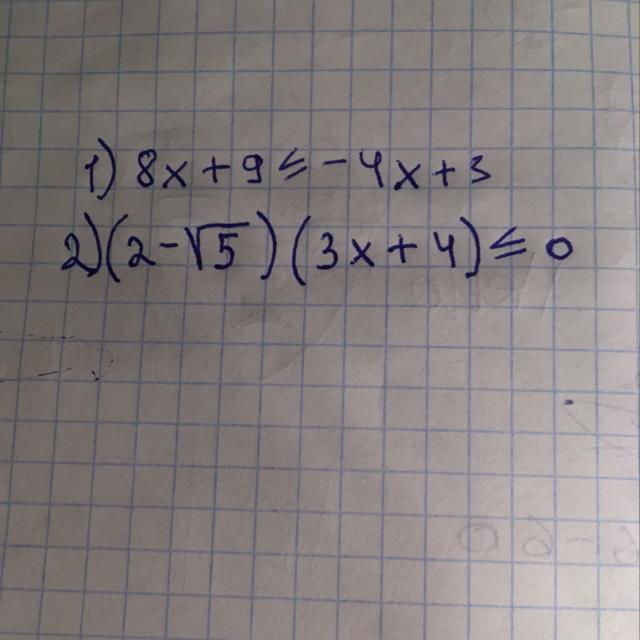 1) 8x + 9 ≤ -4x + 3
2) (2 - √5) (3x + 4) ≤ 0